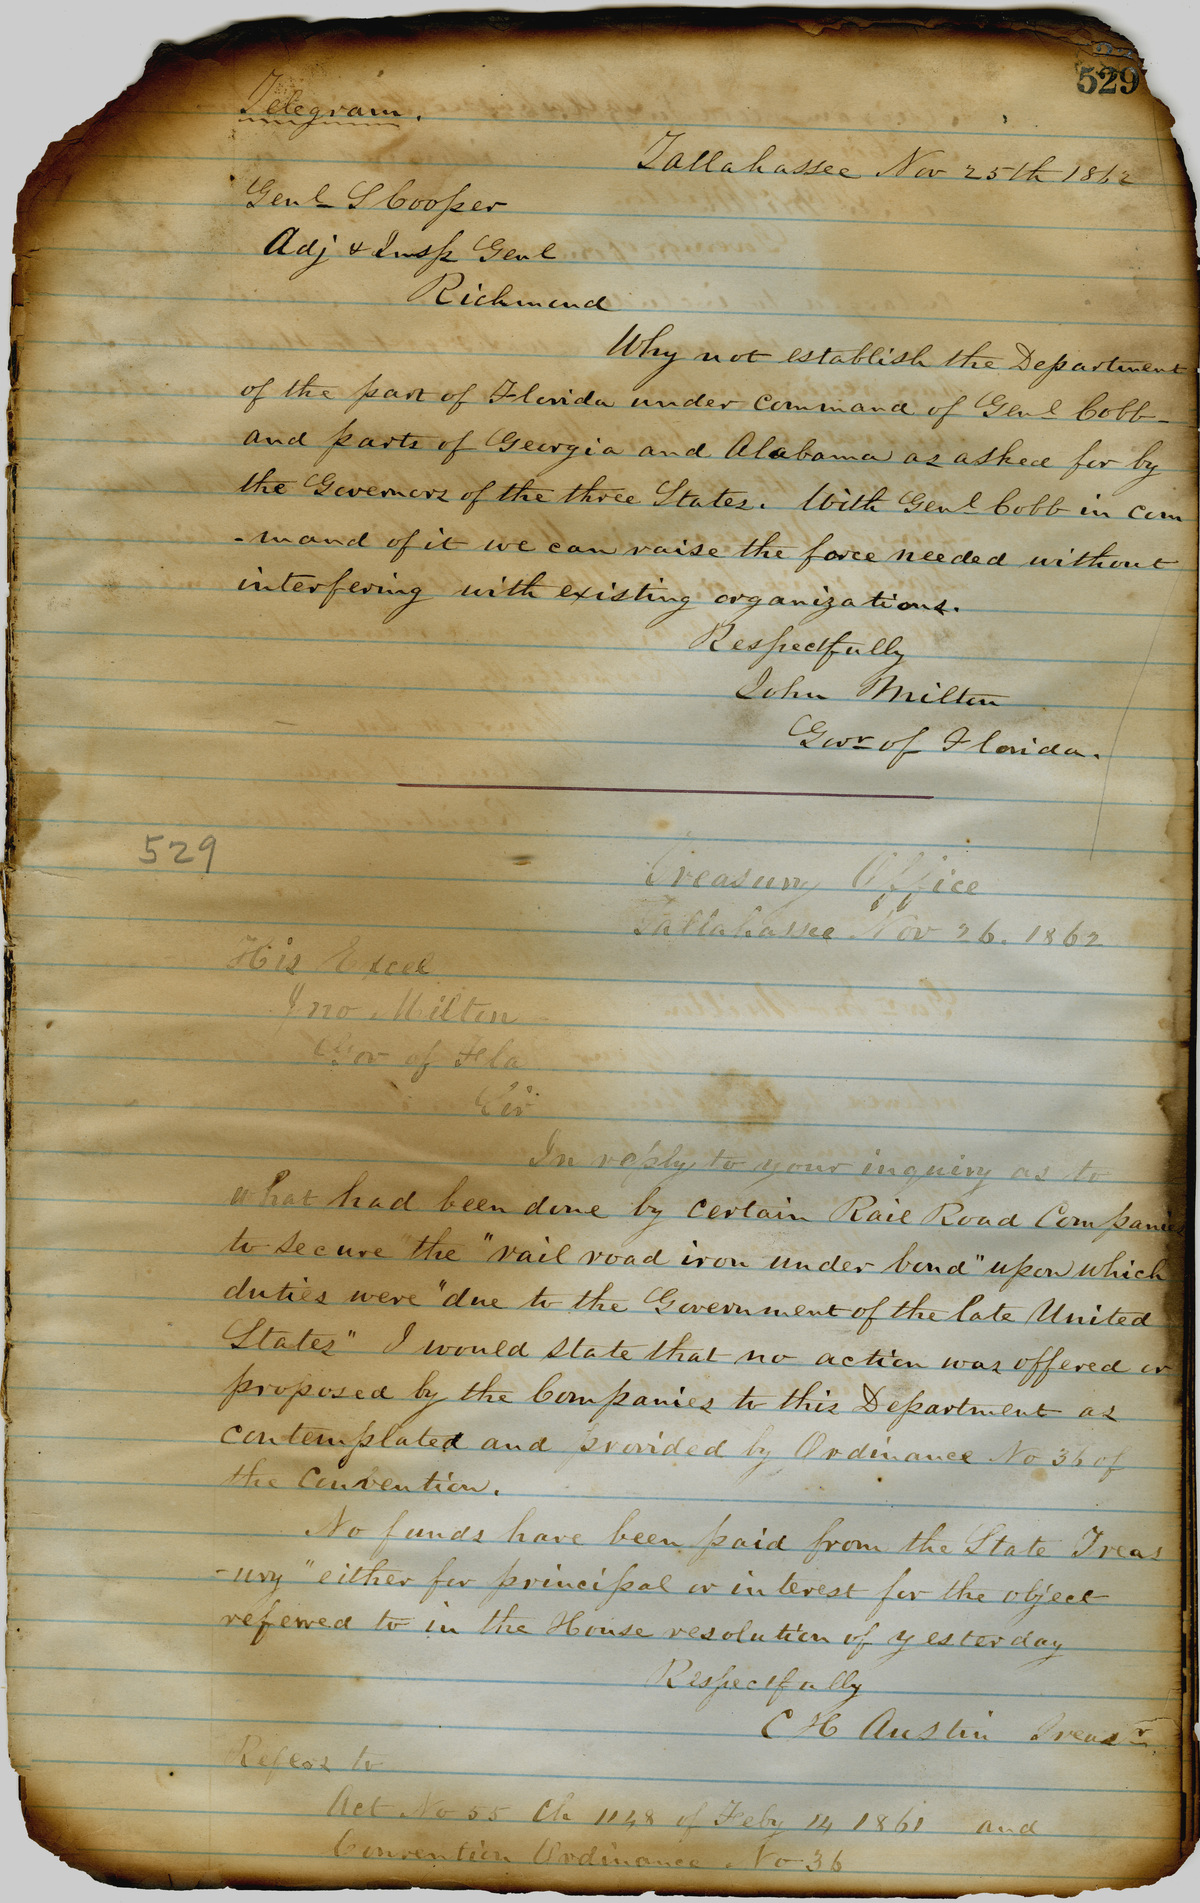 529
Telegram.
Tallahassee Nov 25th 1862
Genl S Cooper
Adj & Insp Genl
Richmond
Why not establish the Department
of the part of Florida under command of Genl Cobb-
and parts of Georgia and Alabama as asked for by
the Governors of the three States. With Genl Cobb in com
-mand of it we can raise the force needed without
interfering with existing organizations.
Respectfully
John Milton
Govr of Florida.
529
Treasury Office
Tallahassee Nov 26. 1862
His Excel
Jno Milton
Gov of Fla
Sir
In reply to your inquiry as to
what had been done by certain Rail Road Companies
to secure the "rail road iron under bond" upon which
duties were "due to the Government of the late United
States" I would state that no action was offered or
proposed by the Companies to this Department as
contemplated and provided by Ordinance No 36 of
the convention.
No funds have been paid from the State Treas
-ury "either for principal or interest for the object
referred to in the House resolution of yesterday
Respectfully
C H Austin Treasr
Refers to
Act No 55 Ch 1148 of Feby 14 1861 and
Convention Ordinance No 36